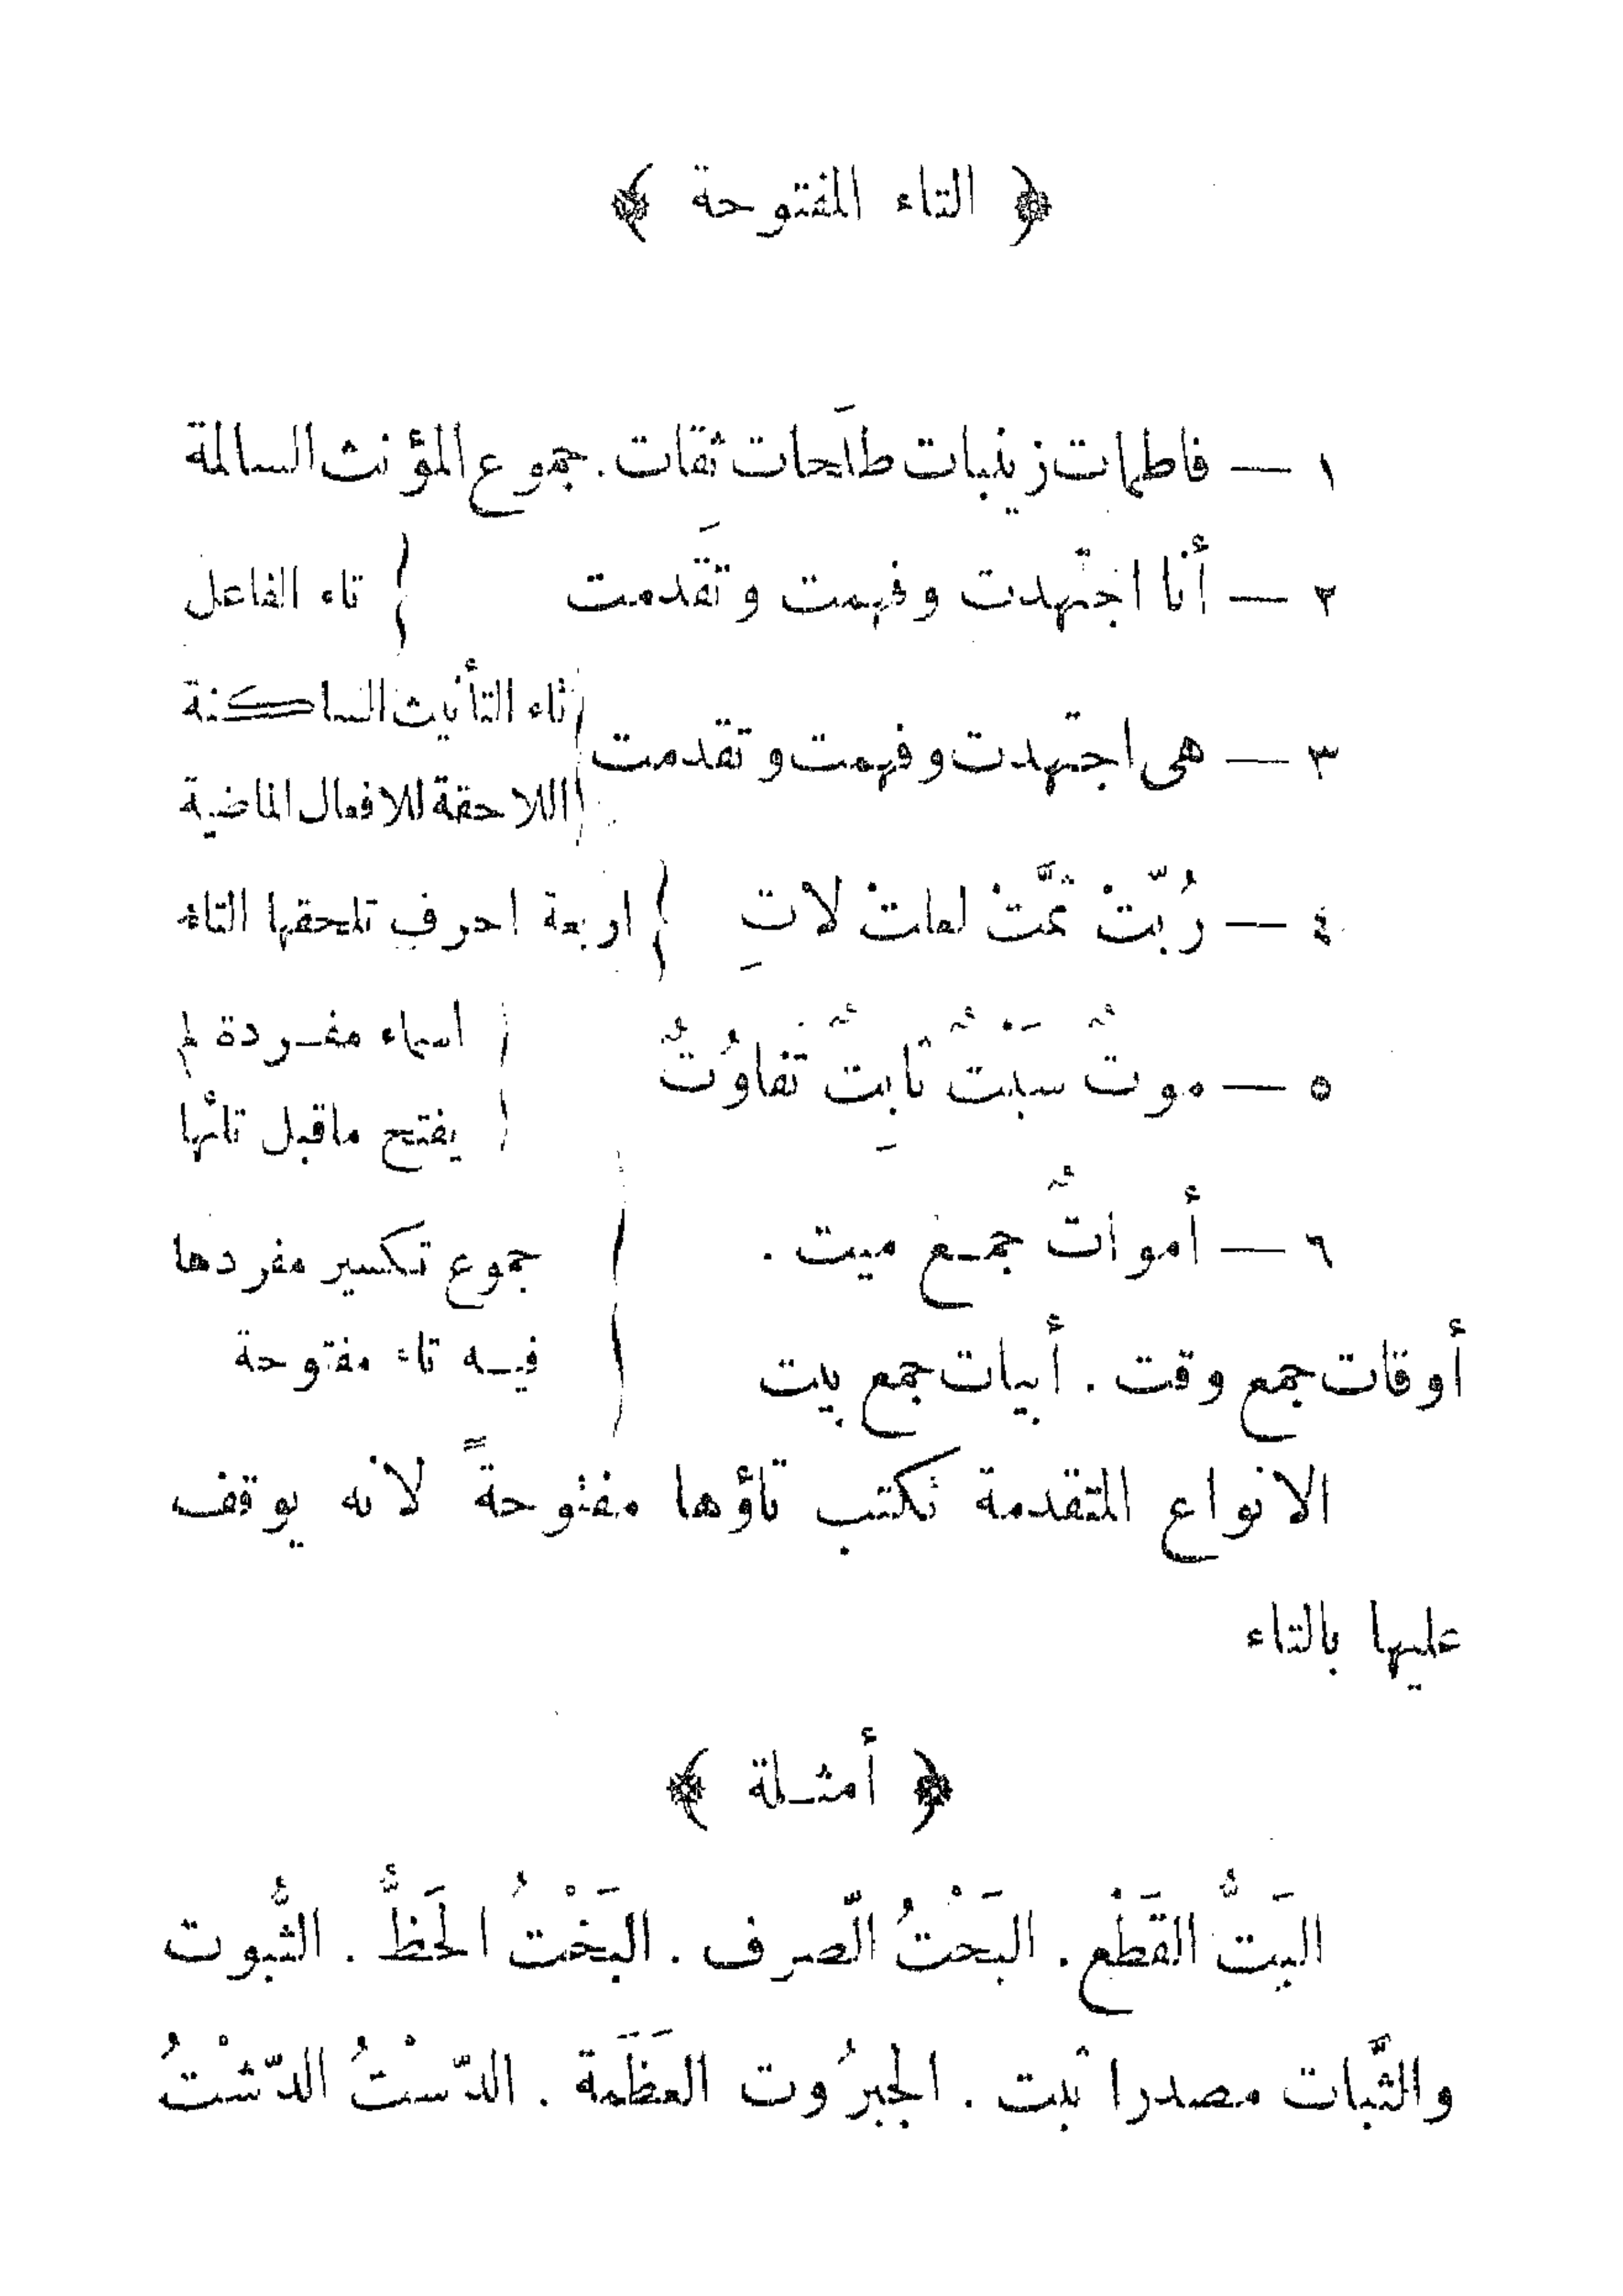 ﴿ التاء المفتوحة ﴾
١ — فاطمات زينبات طلَحات ثقات. جموع المؤنث السالمة
٢ — أنا اجتهدت وفهمت وتقَدمت } تاء الفاعل
٣ — هى اجتهدت وفهمت وتقدمت } تاء التأنيث الساكنة
اللاحقة للافعال الماضية
٤ — رُبّتْ ثمَّتْ لعلتْ لاتِ } اربعة احرف تلحقها التاء
٥ — موتٌ سَبْتٌ ثابِتٌ تَفاوُتٌ } اسماء مفردة لم
يفتح ماقبل تائها
٦ — أمواتٌ جمع ميت . } جموع تكسير مفردها
أوقات جمع وقت . أبيات جمع بيت } فيه تاء مفتوحة
الانواع المتقدمة تكتب تاؤها مفتوحةً لانه يوقف
عليها بالتاء
﴿ أمثلة ﴾
البَتُّ القَطْع . البَحْتُ الصّرف . البَخْتُ الحَظُّ . الثُّبوت
والثَّبات مصدرا ثبت . الجبرُوت العَظَمة . الدّسْتُ الدّشْتُ